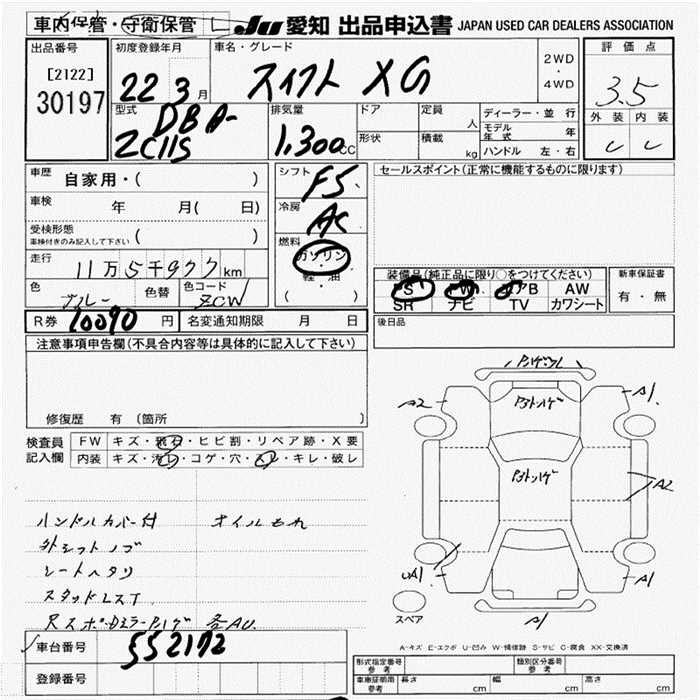 車内保管・守衛保管 JU 愛知 出品申込書 JAPAN USED CAR DEALERS ASSOCIATION
出品番号 初度登録年月 車名・グレード 評価点
[2122] 2WD
30197 22 3月 スイフト XG ・ 3.5
4WD
外装 内装
型式 排気量 ドア 定員 ディーラー・並行
DBA- 人 モデル年式 年
ZC11S 1,300cc 形状 積載 kg ハンドル 左・右 C C
車歴 自家用・( ) シフト F5 セールスポイント(正常に機能するものに限ります)
車検 年 月(日) 冷房 AC
受検形態 ( )
車検付きのみ記入して下さい
燃料 ガソリン
走行 11万5千977km ・軽・油
( )
装備品(純正品に限り○をつけてください) 新車保証書
色 ブルー 色替 色コード ZCW PS PW エアB AW 有・無
SR ナビ TV カワシート
R券 10090円 名変通知期限 月 日 後日品
注意事項申告欄(不具合内容等は具体的に記入して下さい)
修復歴 有 (箇所 )
検査員 FW キズ・飛石・ヒビ割・リペア跡・X要
記入欄 内装 キズ・汚レ・コゲ・穴・スレ・キレ・破レ
ハンドルカバー付 オイルもれ
外シフトノブ
シートヘタリ
スタッドレスT
A2
A1
A2
UA1
A1
スペア A1
A-キズ E-エクボ U-凹み W-補修跡 S-サビ C-腐食 XX-交換済
車台番号 552172
登録番号
型式指定番号 参考 類別区分番号 参考
車庫証明用 参考 長さ cm 幅 cm 高さ cm